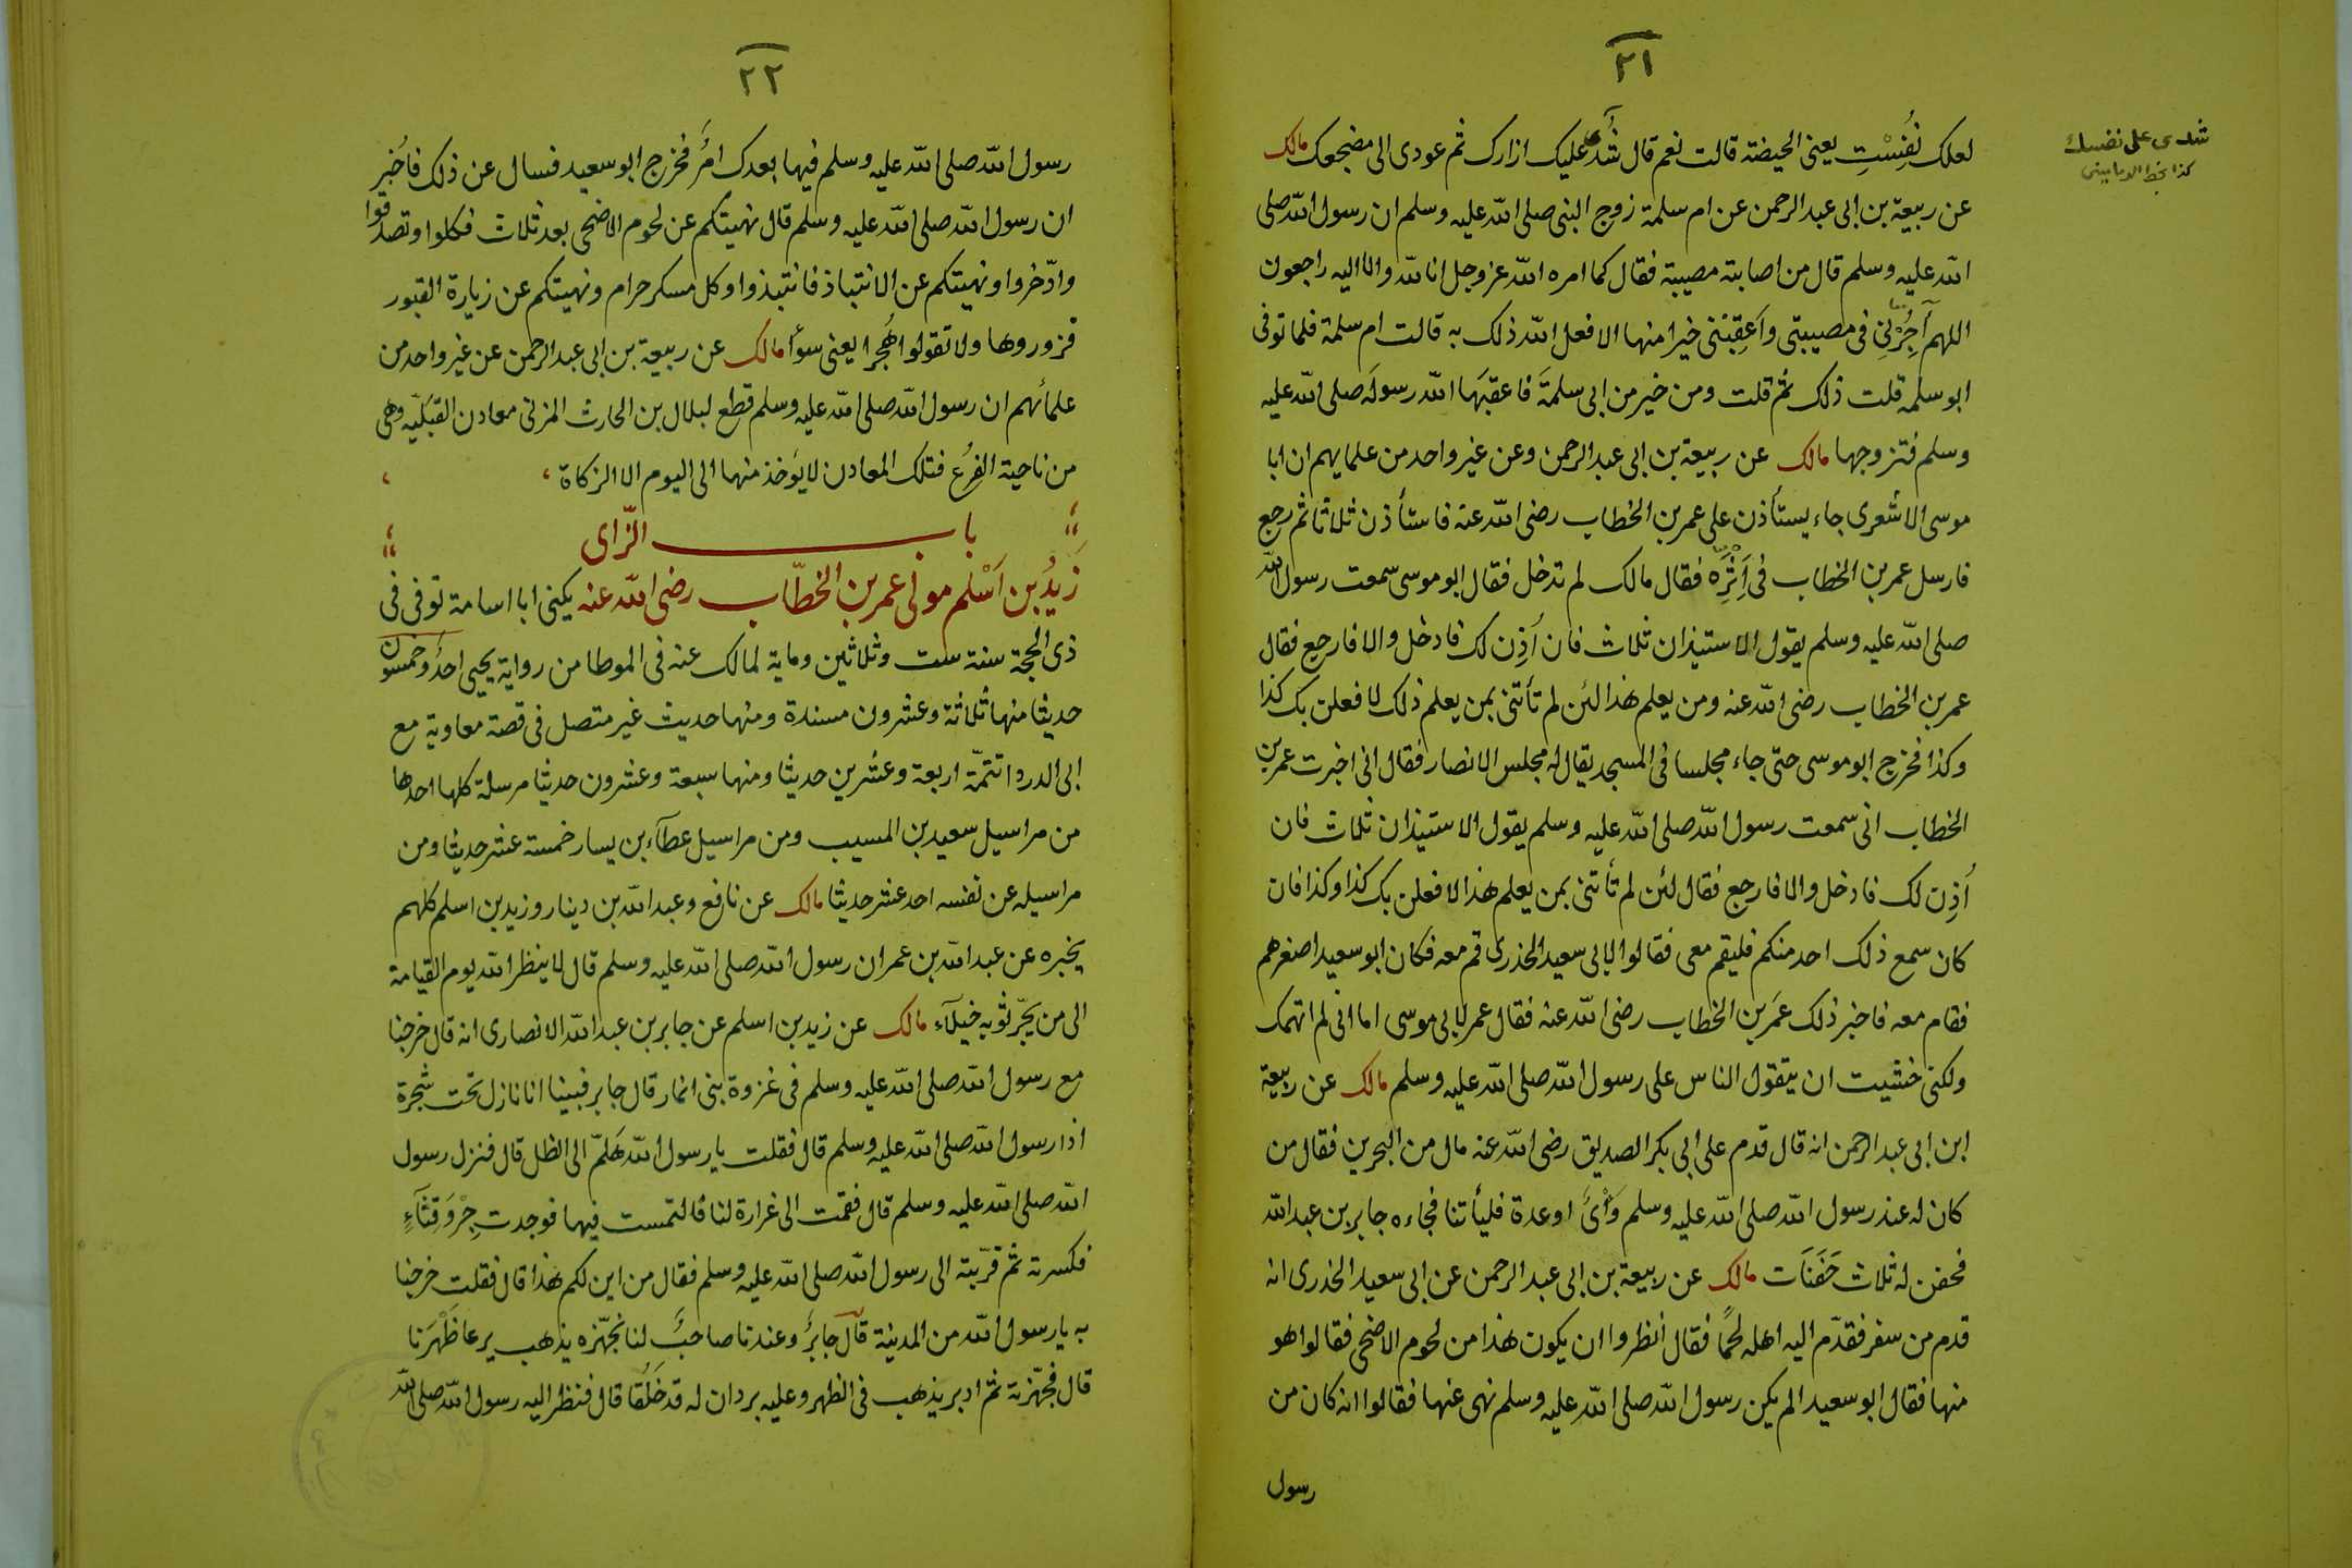 ٢١
لعلك نُفِسْتِ يعنى الحيضة قالت نعم قال شُدّى عليك ازارك ثم عودى الى مضجعك مالك
شدى على نفسك
عن ربيعة بن ابى عبد الرحمن عن ام سلمة زوج النبى صلى الله عليه وسلم ان رسول الله صلى
الله عليه وسلم قال من اصابته مصيبة فقال كما امره الله عز وجل انا لله وانا اليه راجعون
اللهم آجِرْنِى فى مصيبتى وَاَعقِبْنى خيرا منها الا فعل الله ذلك به قالت ام سلمة فلما توفى
ابو سلمه قلت ذلك ثم قلت ومن خير من ابى سلمةَ فاعقبَها الله رسولَه صلى الله عليه
وسلم فتزوجها مالك عن ربيعة بن ابى عبد الرحمن وعن غير واحد من علمايهم ان ابا
موسى الاشعرى جاء يستأذن على عمر بن الخطاب رضى الله عنه فاستأذن ثلاثا ثم رجع
فارسل عمر بن الخطاب فى اَثَرِه فقال مالك لم تدخل فقال ابو موسى سمعت رسول الله
صلى الله عليه وسلم يقول الاستيذان ثلاث فان اُذِن لك فادخل والا فارجع فقال
عمر بن الخطاب رضى الله عنه ومن يعلم هذا لئن لم تأتنى بمن يعلم ذلك لافعلن بك كذا
وكذا فخرج ابو موسى حتى جاء مجلسا فى المسجد يقال له مجلس الانصار فقال انى اخبرت عمر بن
الخطاب انى سمعت رسول الله صلى الله عليه وسلم يقول الاستيذان ثلاث فان
اُذِن لك فادخل والا فارجع فقال لئن لم تأتنى بمن يعلم هذا لافعلن بك كذا وكذا فان
كان سمع ذلك احد منكم فليقم معى فقالوا لابى سعيد الخدرى قم معه فكان ابو سعيد اصغرهم
فقام معه فاخبر ذلك عمَر بن الخطاب رضى الله عنه فقال عمر لابى موسى اما انى لم اتهمك
ولكنى خشيت ان يتقول الناس على رسول الله صلى الله عليه وسلم مالك عن ربيعة
ابن ابى عبد الرحمن انه قال قدم على ابى بكر الصديق رضى الله عنه مال من البحرين فقال من
كان له عند رسول الله صلى الله عليه وسلم وَأْىٌ او عدة فليأتنا فجاءه جابر بن عبد الله
فحفن له ثلاث حَفَنَات مالك عن ربيعة بن ابى عبد الرحمن عن ابى سعيد الخدرى انه
قدم من سفر فقدّم اليه اهله لحمًا فقال انظروا ان يكون هذا من لحوم الاضحى فقالوا هو
منها فقال ابو سعيد الم يكن رسول الله صلى الله عليه وسلم نهى عنها فقالوا انه كان من
رسول
٢٢
رسول الله صلى الله عليه وسلم فيها بعدك امرٌ فخرج ابو سعيد فسال عن ذلك فاُخبِر
ان رسول الله صلى الله عليه وسلم قال نهيتكم عن لحوم الاضحى بعد ثلاث فكلوا وتصدقوا
وادّخروا ونهيتكم عن الانتباذ فانتبذوا وكل مسكر حرام ونهيتكم عن زيارة القبور
فزوروها ولا تقولوا هُجرا يعنى سوأ مالك عن ربيعة بن ابى عبد الرحمن عن غير واحد من
علمأئهم ان رسول الله صلى الله عليه وسلم قطع لبلال بن الحارث المزنى معادن القبَليّه وهى
من ناحية الفُرُع فتلك المعادن لا يؤخذ منها الى اليوم الا الزكاة
باب الزّاى
زَيدُ بن اَسْلم مولى عمر بن الخطّاب رضى الله عنه يكنى ابا اسامة توفى فى
ذى الحجة سنة ست وثلاثين وماية لمالك عنه فى الموطا من رواية يحيى احدٌ وخمسون
حديثا منها ثلاثة وعشرون مسندة ومنها حديث غير متصل فى قصة معاوية مع
ابى الدردا تتمّة اربعة وعشرين حديثا ومنها سبعة وعشرون حديثا مرسلة كلها احدها
من مراسيل سعيد بن المسيب ومن مراسيل عطآء بن يسار خمسة عشر حديثا ومن
مراسيله عن نفسه احد عشر حديثا مالك عن نافع وعبد الله بن دينار وزيد بن اسلم كلهم
يخبره عن عبد الله بن عمر ان رسول الله صلى الله عليه وسلم قال لا ينظر الله يوم القيامة
الى من يجّر ثوبه خيلآء مالك عن زيد بن اسلم عن جابر بن عبد الله الانصارى انه قال خرجنا
مع رسول الله صلى الله عليه وسلم فى غزوة بنى انمار قال جابر فبينا انا نازل تحت شجرة
اذا رسول الله صلى الله عليه وسلم قال فقلت يا رسول الله هَلمّ الى الظل قال فنزل رسول
الله صلى الله عليه وسلم قال فقمت الى غرارة لنا فالتمست فيها فوجدت جِرْوَ قِثآءٍ
فكسرته ثم قرّبته الى رسول الله صلى الله عليه وسلم فقال من اين لكم هذا قال فقلت خرجنا
به يا رسول الله من المدينة قال جابرٌ وعندنا صاحبٌ لنا نجهّزه يذهب يرعا ظَهْرَنا
قال فجهّزته ثم ادبر يذهب فى الظهر وعليه بردان له قد خَلُقا قال فنظر اليه رسول الله صلى الله